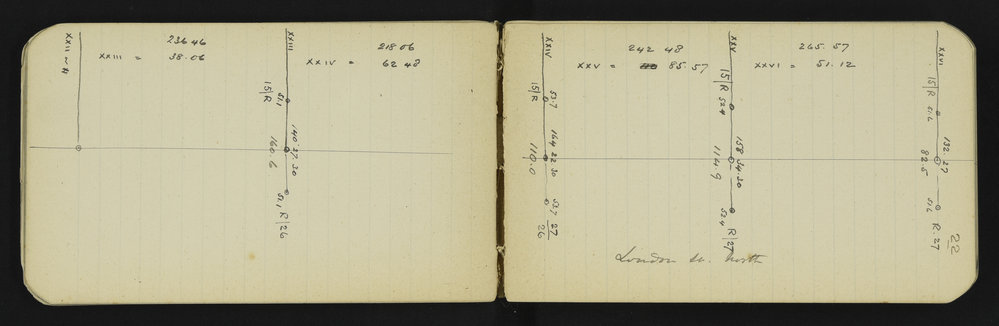 XXII
236 46
XXIII = 38.06
XXIII
15|R
51.1
140.27.30
160.6
52.1 R|26
218 06
XXIV = 62 48
XXIV
15|R
53.7
164 22 30
110.0
53.7 27
26
242 48
XXV = 85.57
XXV
15|R
52.4
158 34.30
114.9
52.4 R|27
265.57
XXVI = 51.12
XXVI
15|R
51.6
132.27
82.5
51.6 R.27
22
London St. North